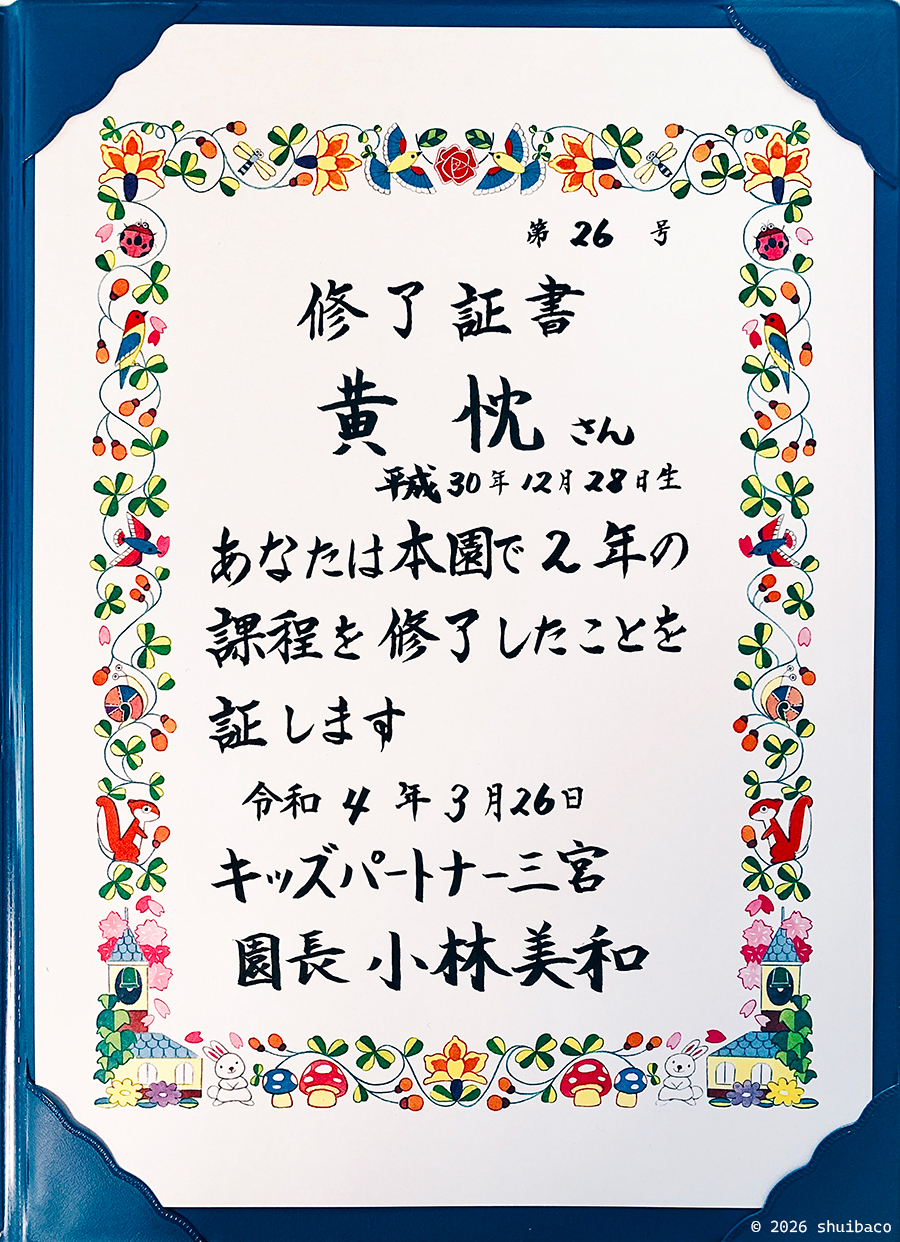 第 26 号
修了証書
黄 忱 さん
平成30年12月28日生
あなたは本園で2年の
課程を修了したことを
証します
令和4年3月26日
キッズパートナー三宮
園長 小林美和
© 2026 shuibaco